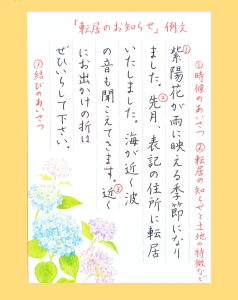 「転居のお知らせ」例文
①時候のあいさつ ②転居の知らせと土地の特徴など
①紫陽花が雨に映える季節になり
ました。②先月、表記の住所に転居
いたしました。海が近く波
の音も聞こえてきます。③近く
にお出かけの折は
ぜひいらして下さい。
③結びのあいさつ